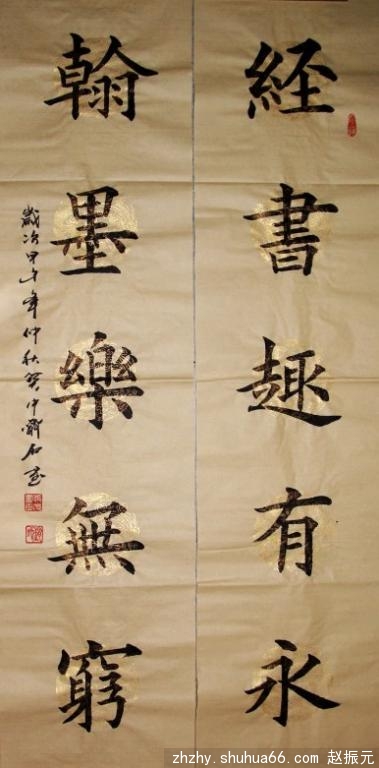 経書趣有永
翰墨樂無窮
歲次甲午年仲秋
zhzhy.shuhua66.com 赵振元